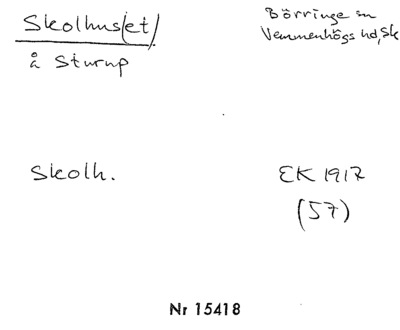 Skolhus(et)
å Sturup
Börringe sn
Vemmenhögs hd, Sk
Skolh.
EK 1917
(57)
Nr 15418